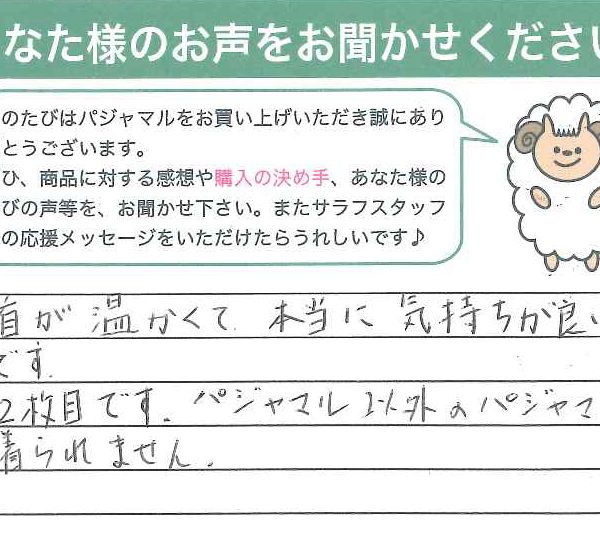 なた様のお声をお聞かせください
のたびはパジャマルをお買い上げいただき誠にあり
とうございます。
ひ、商品に対する感想や購入の決め手、あなた様の
びの声等を、お聞かせ下さい。またサラフスタッフ
の応援メッセージをいただけたらうれしいです♪
首が温かくて本当に気持ちが良い
です.
2枚目です.パジャマル以外のパジャマ
着られません.